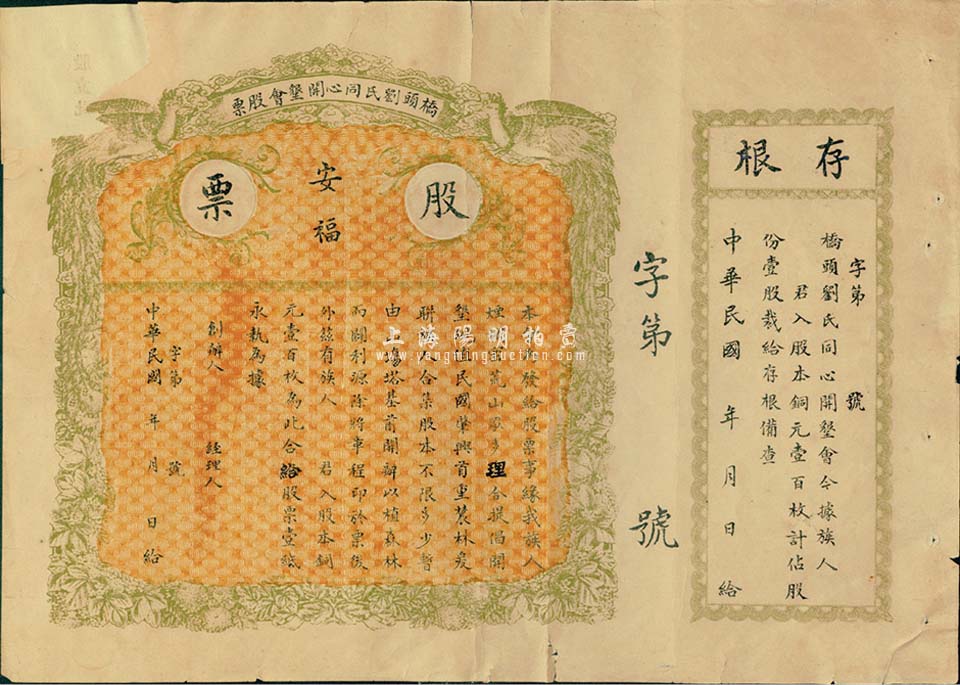 存根
字第 號
橋頭劉氏同心開墾會今據族人
君入股本銅元壹百枚計佔股
份壹股裁給存根備查
中華民國 年 月 日 給
字第 號
橋頭劉氏同心開墾會股票
股票
安福
本 發給股票事緣我族人
煙 荒山眾多理合提倡開
墾 民國肇興首重農林爰
聯 合集股本不限多少暫
由 陽塔基前開辦以植森林
而闢利源除將車程印於票後
外茲有族人 君入股本銅
元壹百枚為此合給股票壹紙
永執為據
創辦人 經理人
字第 號
中華民國 年 月 日 給
上海陽明拍賣
www.yangmingauction.com